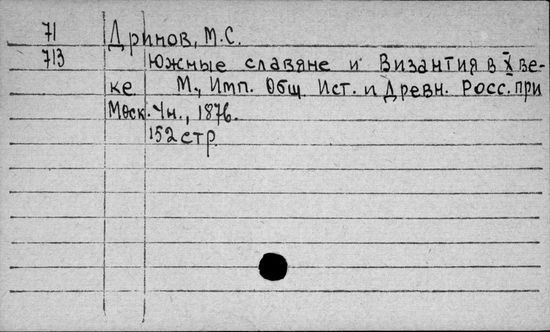 71 Дринов, М.С.
713 Южные славяне и Византия в X ве-
ке М., Имп. Общ. Ист. и Древн. Росс. при
Моск. Ун., 1876.
152 стр.